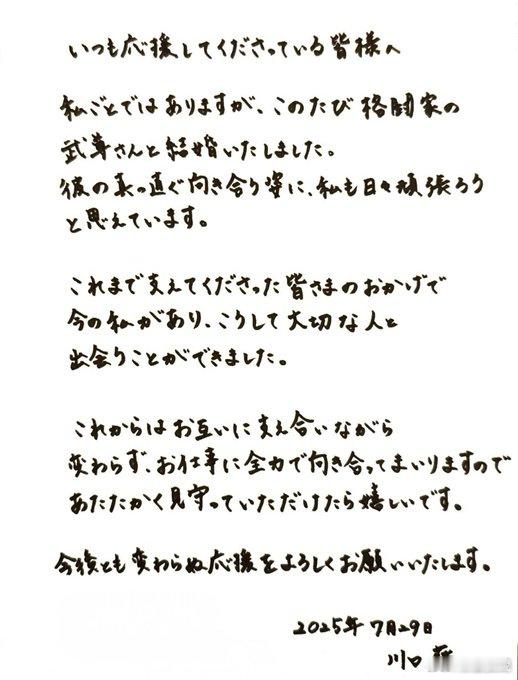 いつも応援してくださっている皆様へ
私ごとではありますが、このたび格闘家の
武尊さんと結婚いたしました。
彼の真っ直ぐ向き合う姿に、私も日々頑張ろう
と思えています。
これまで支えてくださった皆さまのおかげで
今の私があり、こうして大切な人と
出会うことができました。
これからはお互いに支え合いながら
変わらず、お仕事に全力で向き合ってまいりますので
あたたかく見守っていただけたら嬉しいです。
今後とも変わらぬ応援をよろしくお願いいたします。
2025年7月29日
川口